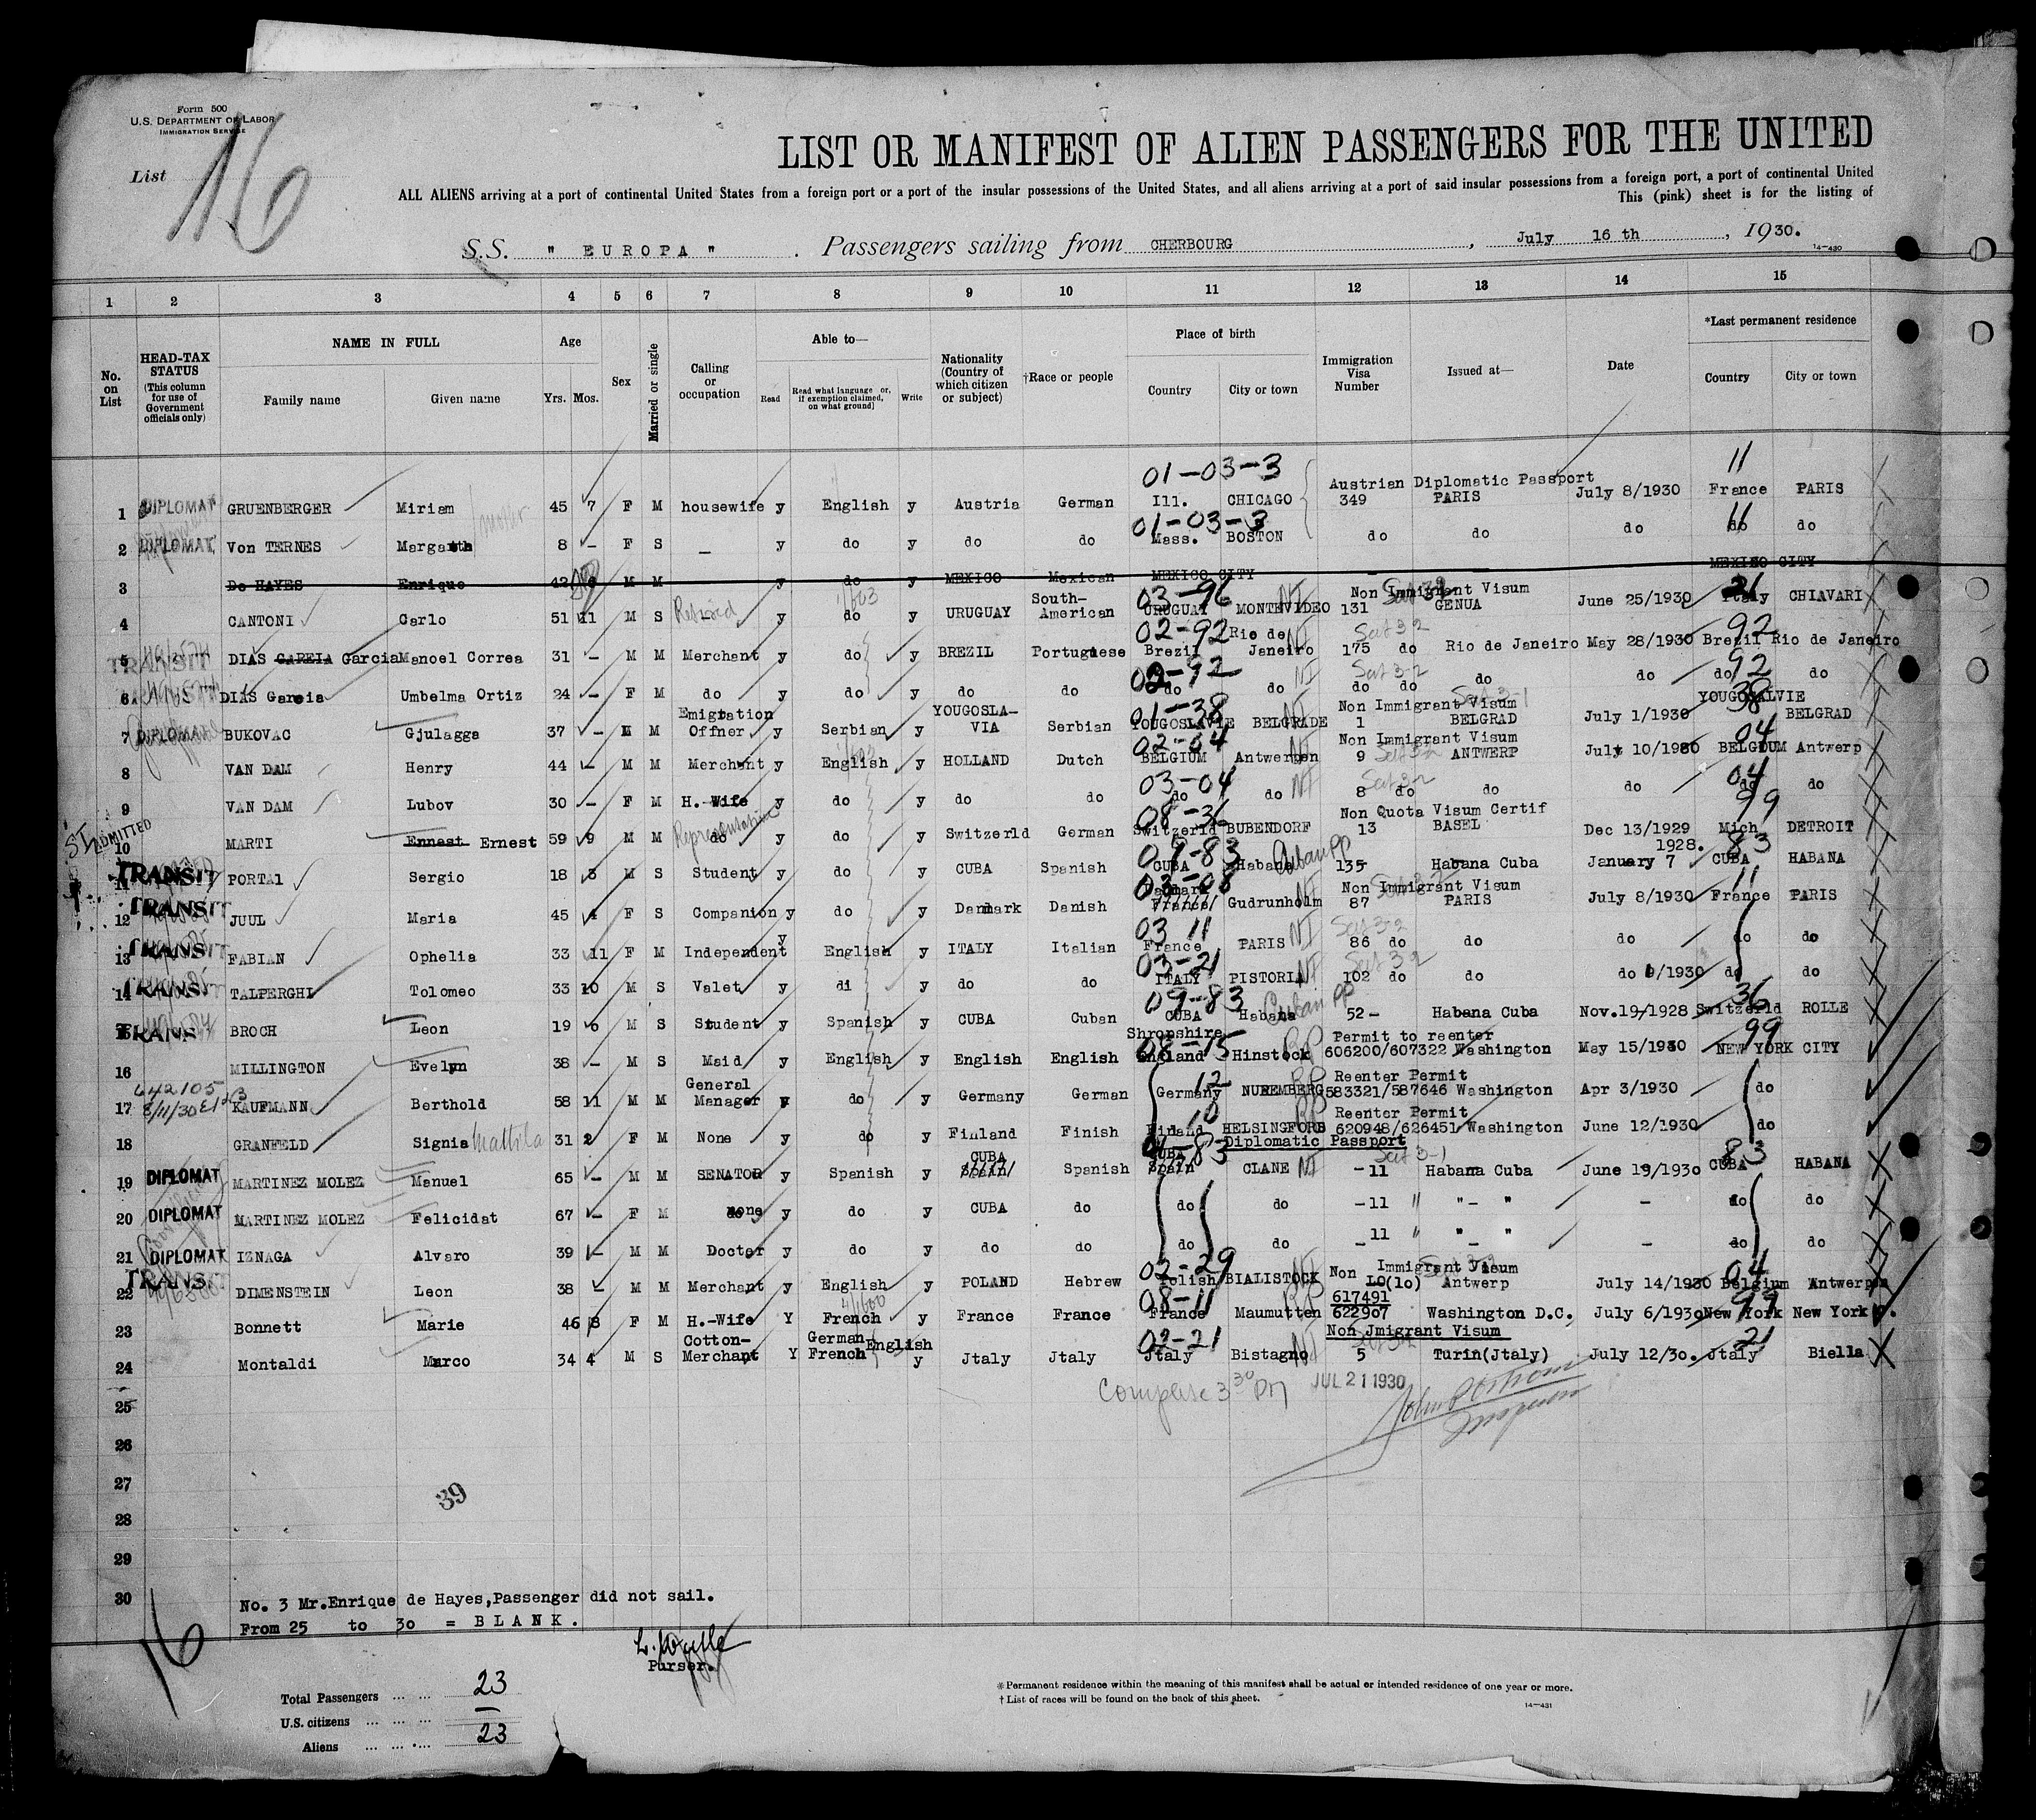 Form 500
U.S. DEPARTMENT OF LABOR
IMMIGRATION SERVICE
List 16
LIST OR MANIFEST OF ALIEN PASSENGERS FOR THE UNITED
ALL ALIENS arriving at a port of continental United States from a foreign port or a port of the insular possessions of the United States, and all aliens arriving at a port of said insular possessions from a foreign port, a port of continental United
This (pink) sheet is for the listing of
S.S. " EUROPA " . Passengers sailing from CHERBOURG , July 16 th , 1930.
14-430
1 2 3 4 5 6 7 8 9 10 11 12 13 14 15
No. on List
HEAD-TAX STATUS (This column for use of Government officials only)
NAME IN FULL
Family name Given name
Age
Yrs. Mos.
Sex
Married or single
Calling or occupation
Able to—
Read Read what language or, if exemption claimed, on what ground] Write
Nationality (Country of which citizen or subject)
†Race or people
Place of birth
Country City or town
Immigration Visa Number
Issued at—
Date
*Last permanent residence
Country City or town
01-03-3 11
Austrian Diplomatic Passport
1 DIPLOMAT GRUENBERGER Miriam 45 7 F M housewife y English y Austria German Ill. CHICAGO 349 PARIS July 8/1930 France PARIS
01-03-3 11
2 DIPLOMAT Von TERNES Margareth 8 - F S - y do y do do Mass. BOSTON do do do do do
3 De HAYES Enrique 42 M M y do y MEXICO Mexican MEXICO CITY MEXICO CITY
03-96 Non Immigrant Visum 21
4 CANTONI Carlo 51 11 M S Retired y do y URUGUAY South-American URUGUAY MONTEVIDEO 131 GENUA June 25/1930 Italy CHIAVARI
02-92 92
5 TRANSIT DIAS GAREIA Garcia Manoel Correa 31 - M M Merchant y do y BREZIL Portuguese Brezil Rio de Janeiro 175 do Rio de Janeiro May 28/1930 Brezil Rio de Janeiro
02-92 92
6 DIAS Garcia Umbelma Ortiz 24 - F M do y do y do do do do do do do do do do
01-38 Non Immigrant Visum 38
7 DIPLOMAT BUKOVAC Gjulagga 37 - M M Emigration Offner y Serbian y YOUGOSLA-VIA Serbian YOUGOSLAVIE BELGRADE 1 BELGRAD July 1/1930 YOUGOSALVIE BELGRAD
02-04 Non Immigrant Visum 04
8 VAN DAM Henry 44 - M M Merchant y English y HOLLAND Dutch BELGIUM Antwerpen 9 ANTWERP July 10/1930 BELGIUM Antwerp
03-04 04
9 VAN DAM Lubov 30 - F M H.-Wife y do y do do do do 8 do do do do do
08-36 Non Quota Visum Certif 99
ADMITTED
10 MARTI Ennest Ernest 59 9 M M do Representative y do y Switzerld German Switzerld BUBENDORF 13 BASEL Dec 13/1929 Mich DETROIT
09-83 Cuban PP 1928. 83
11 TRANSIT PORTAl Sergio 18 3 M S Student y do y CUBA Spanish CUBA Habana 135- Habana Cuba January 7 CUBA HABANA
03-08 Non Immigrant Visum 11
12 TRANSIT JUUL Maria 45 4 F S Companion y do y Danmark Danish Danmark France Gudrunholm 87 PARIS July 8/1930 France PARIS
03 11
13 TRANSIT FABIAN Ophelia 33 11 F M Independent y English y ITALY Italian France PARIS 86 do do do do do
03-21
14 TRANSIT TALPERGHI Tolomeo 33 10 M S Valet y di y do do ITALY PISTORIA 102 do do do 9/1930 do do
09-83 Cuban PP 36
15 TRANS BROCH Leon 19 6 M S Student y Spanish y CUBA Cuban CUBA Habana 52- Habana Cuba Nov.19/1928 Switzerld ROLLE
08-15 Permit to reenter 99
16 MILLINGTON Evelyn 38 - M S Maid y English y English English Shropshire England Hinstock 606200/607322 Washington May 15/1930 NEW YORK CITY
642105 12 Reenter Permit
8/11/30
17 KAUFMANN Berthold 58 11 M M General Manager y do y Germany German Germany NUREMBERG 583321/587646 Washington Apr 3/1930 do
10 Reenter Permit
18 GRANFELD Signia Mattila 31 2 F M None y do y Finland Finish Finland HELSINGFORS 620948/626451 Washington June 12/1930 do
Diplomatic Passport 83
19 DIPLOMAT MARTINEZ MOLEZ Manuel 65 - M M SENATOR y Spanish y CUBA Spanish CUBA Spain CLANE -11 Habana Cuba June 19/1930 CUBA HABANA
20 DIPLOMAT MARTINEZ MOLEZ Felicidat 67 - F M none y do y CUBA do do do -11 " "-" - do do
21 DIPLOMAT IZNAGA Alvaro 39 - M M Doctor y do y do do do do -11 " "-" - do do
02-29 Non Immigrant Visum 04
22 TRANSIT DIMENSTEIN Leon 38 - M M Merchant y English y POLAND Hebrew Polish BIALISTOCK 10(10) Antwerp July 14/1930 Belgium Antwerpen
08-11 617491 99
23 Bonnett Marie 46 8 F M H.-Wife Y French y France France France Maumutten 622907 Washington D.C. July 6/1930 New York New York
02-21 Non Jmigrant Visum 21
24 Montaldi Marco 34 4 M S Cotton-Merchant Y German French English y Jtaly Jtaly Jtaly Bistagno 5 Turin(Jtaly) July 12/30. Jtaly Biella
Complete 3 30 PM JUL 21 1930
25
26
27
39
28
29
30
No. 3 Mr.Enrique de Hayes,Passenger did not sail.
From 25 to 30 = BLANK.
16
Purser.
Total Passengers 23
U.S. citizens -
Aliens 23
*Permanent residence within the meaning of this manifest shall be actual or intended residence of one year or more.
†List of races will be found on the back of this sheet.
14-431